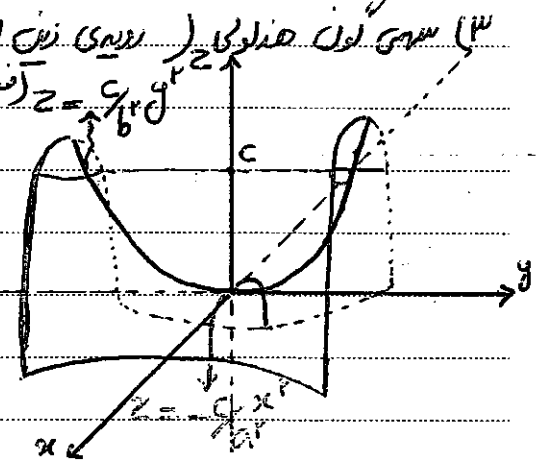 ۳) سهمی گون هذلولی ( رویه‌ی زین
z
z = c/b² y²
c
y
z = -c/a² x²
x